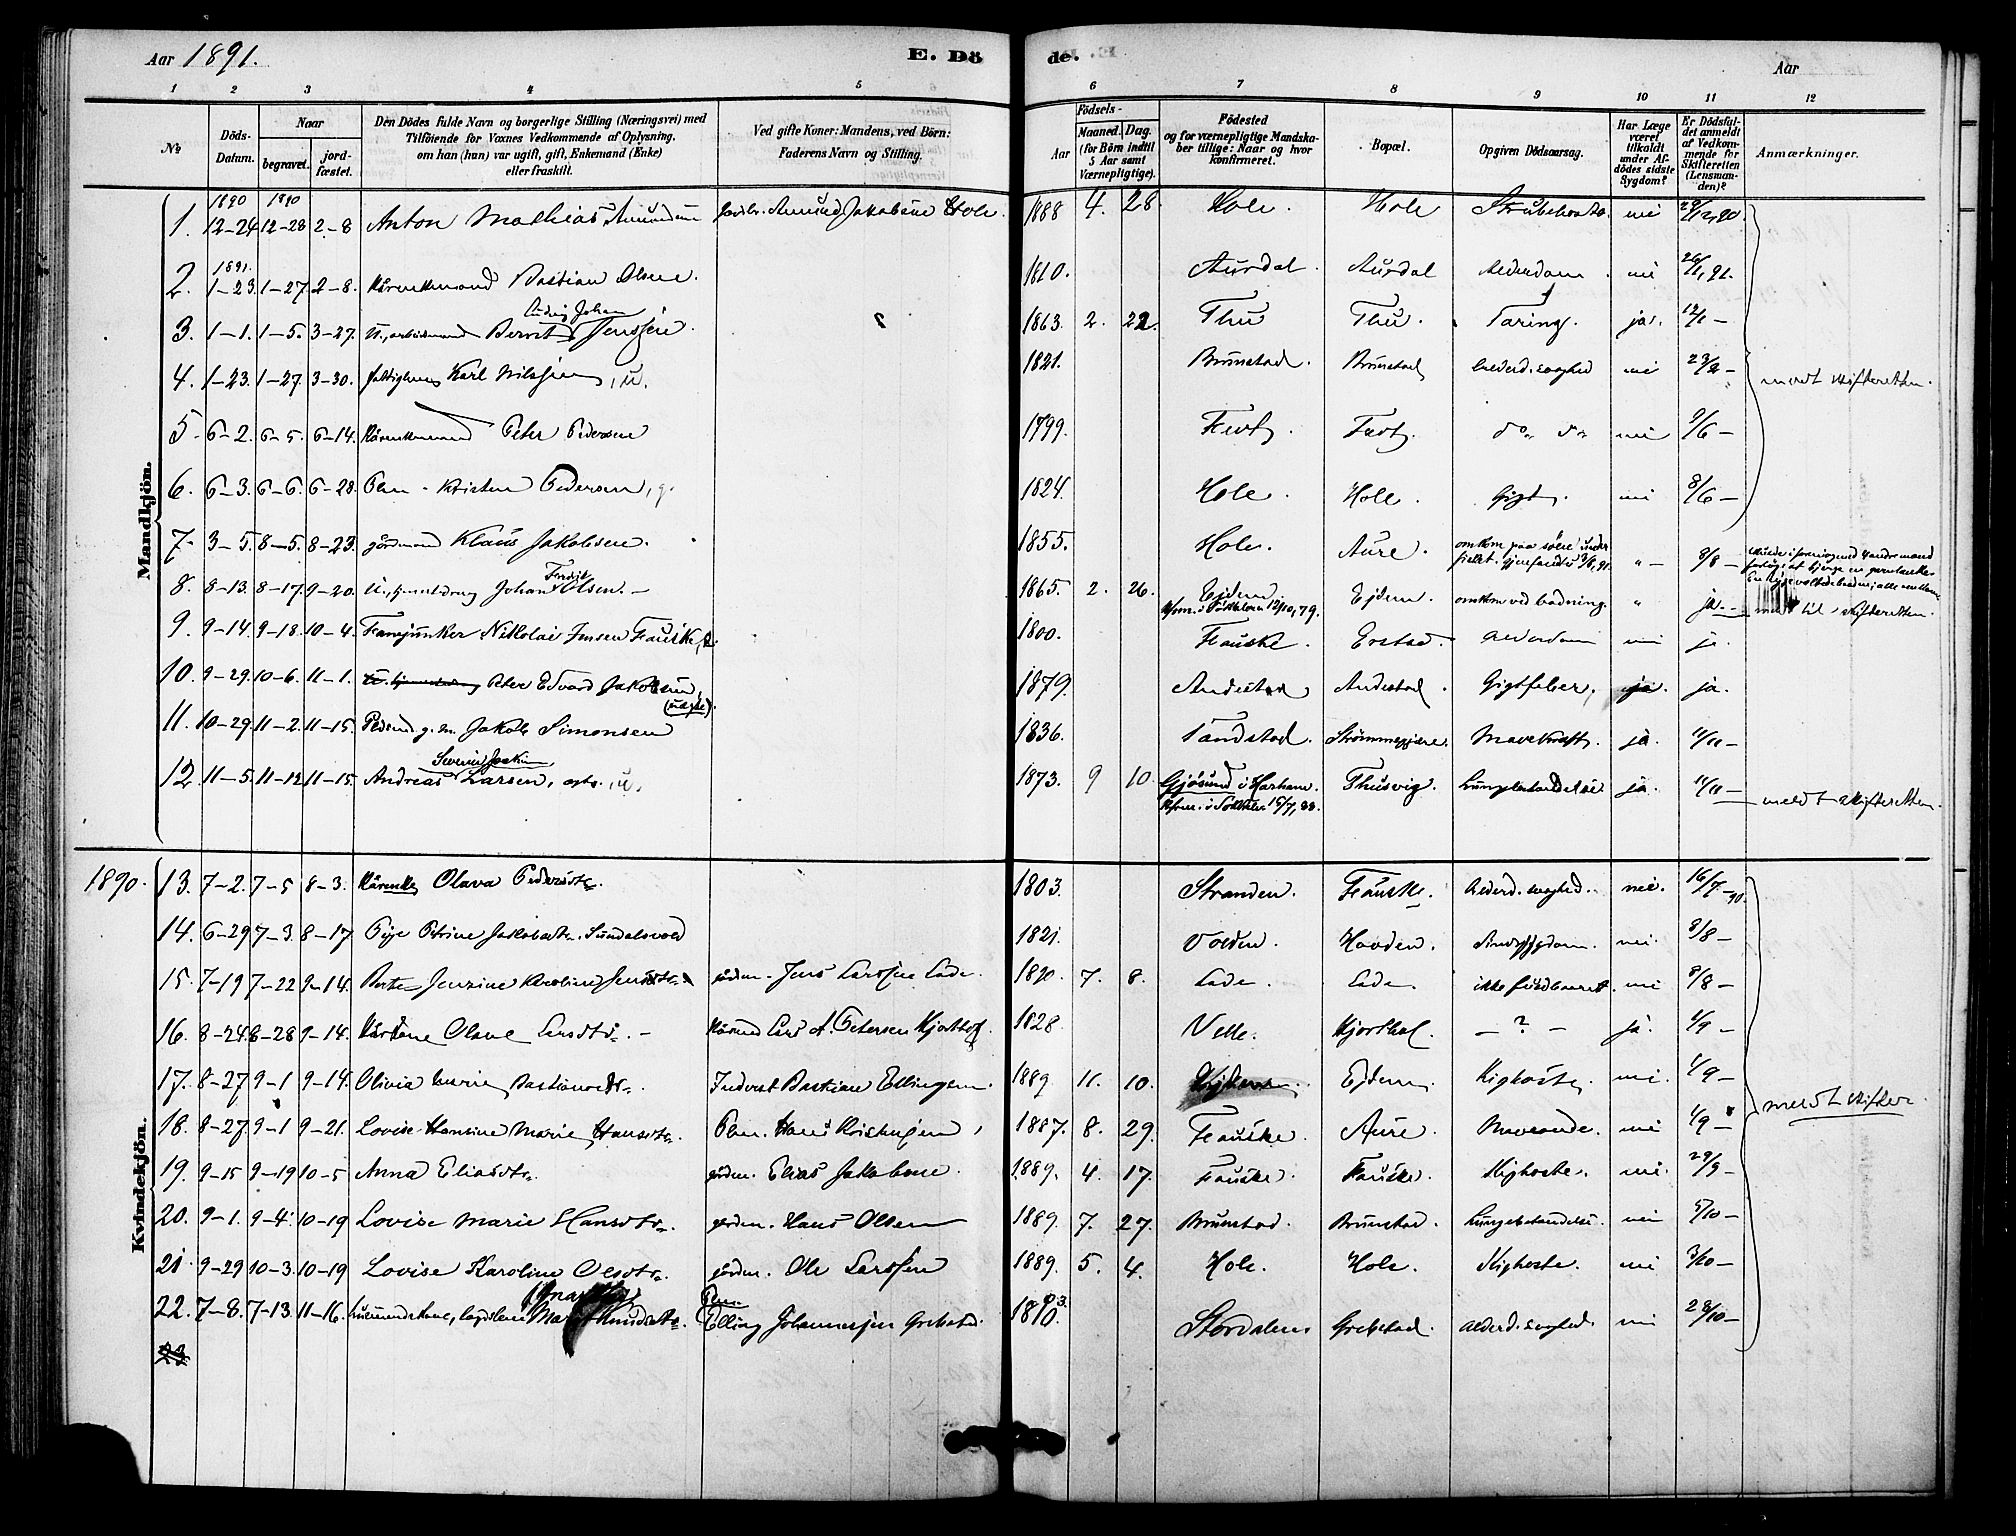 Aar 1891.
E. Dö
de.
Aar
1 2 3 4 5 6 7 8 9 10 11 12
No
Döds-Datum.
Naar
begravet.
jord-fæstet.
Den Dödes fulde Navn og borgerlige Stilling (Næringsvei) med
Tilföiende for Voxnes Vedkommende af Oplysning,
om han (hun) var ugift, gift, Enkemand (Enke)
eller fraskilt.
Ved gifte Koner: Mandens, ved Börn:
Faderens Navn og Stilling.
Födsels-
Aar
Maaned.
Dag.
(for Börn indtil
5 Aar samt
Værnepligtige).
Födested
og for værnepligtige Mandska-
ber tillige: Naar og hvor
konfirmeret.
Bopæl.
Opgiven Dödsaarsag.
Har Læge
været
tilkaldt
under Af-
dödes sidste
Sygdom?
Er Dödsfal-
det anmeldt
af Vedkom-
mende for
Skifteretten
(Lensman-
den)?
Anmærkninger.
Mandkjön.
1890 1890
1. 12-24 12-28 2-8 Anton Mathias Amundsen Amund Jakobsen Hole 1888 4. 28 Hole. Hole nei 29/12, 90.
1891.
2. 1-23. 1-27. 2-8. Kårenkemand Bastian Olsen. 1810. Aurdal. Aurdal Alderdom. nei 26/1, 91.
Ludvig Johan
3. 1-1. 1-5. 3-27. U., arbeidsmand Bernt Jenssen. 1863. 2. 22. Thu Thu. Taring. ja. 12/1 -
4. 1-23. 1-27. 3-30. Karl Nilssen, u. 1821. Brunstad. Brunstad alderd. svaghed nei 23/2 - meldt skifteretten.
5. 6-2. 6-5. 6-14. Kårenkemand Peter Pedersen 1799. do do nei 9/6 -
6. 6-3. 6-6. 6-28. Kristen Pedersen, g. 1824. Hole. Hole. Gigt. nei 8/6 -
7. 3-5. 8-5. 8-23. gårdmand Klaus Jakobsen. 1855. Hole. Aure. omkom paa søen under
fisket. gjenfandtes 3/8, 91. " - 8/8 -
Fredrik
8. 8-13. 8-17. 9-20. U., Johan Olsen. - 1865. 2. 26. Ejdem. Ejdem. omkom ved badning. " ja. -
12/10, 79.
9. 9-14. 9-18. 10-4. Fanejunker Nikolai Jensen Fauske, 1800. Fauske. Erstad. Alderdom nei ja.
10. 9-29. 10-6. 11-1. Peter Edvard Jakobsen, 1879. Andestad Andestad. Gigtfeber, ja. ja.
11. 10-29. 11-2. 11-15. g. m. Jakob Simonsen 1836. Tandstad. Mavekræft. ja. 4/11 -
Severin Joakim
12. 11-5. 11-12. 11-15. Andreas Larsen, u. 1873. 9 10. Gjøsund i Harham. Thusvig. Lungebetændelse ja. 11/11 - meldt skifteretten.
Kvindekjön.
1890. 13. 7-2. 7-5 8-3. Kårenke Olava Pedersdtr. 1803. Stranden. Fauske. Alderd. svaghed. nei. 16/7 - 90.
14. 6-29 7-3. 8-17 Pige Petrine Jakobsdtr. Sundalsvold 1821. Volden. Hovden. Sindssygdom. nei. 8/8 -
15. 7-19 7-22 9-14. Berte Jensine Karoline Jensdtr. gårdm. Jens Larssen Lade. 1890. 7. 8. Lade. Lade. ikke fuldbaaret. nei 8/8 -
16. 8-24. 8-28 9-14. Olave Larsdtr. - Lars A. Petersen Hjorthol. 1828. Velle. Hjorthol. - ? - ja. 1/9 -
17. 8-27 9-1 9-14. Olivia Marie Bastiansdtr. Inderst Bastian Ellingsen. 1889. 11. 10. Ejdem. Kighoste. nei. 1/9 -
18. 8-27. 9-1 9-21. Lovise Hansine Marie Hansdtr. Hans 1887. 8. 29. Fauske. Aure. Maveonde. nei 1/9 - meldt skifter.
19. 9-15 9-19 10-5 Anna Eliasdtr. gårdm. Elias Jakobsen. 1889. 4. 17. Fauske. Fauske. Kighoste. nei. 29/9 -
20. 9-1. 9-4. 10-19 Lovise Marie Hansdtr. gårdm. Hans Olsen 1889. 7. 27. Brunstad. Brunstad. Lungebetændelse. nei 5/10 -
21. 9-29 10-3. 10-19 Lovise Karoline Olsdtr. gårdm. Ole Larssen 1889. 5. 4. Hole. Hole. Kighoste. nei 3/10 -
22. 7-8. 7-13. 11-16. Knudsdtr. Elling Johannessen Grebstad. Stordalen Grebstad. Alderd. svaghed. nei 28/10 -
23